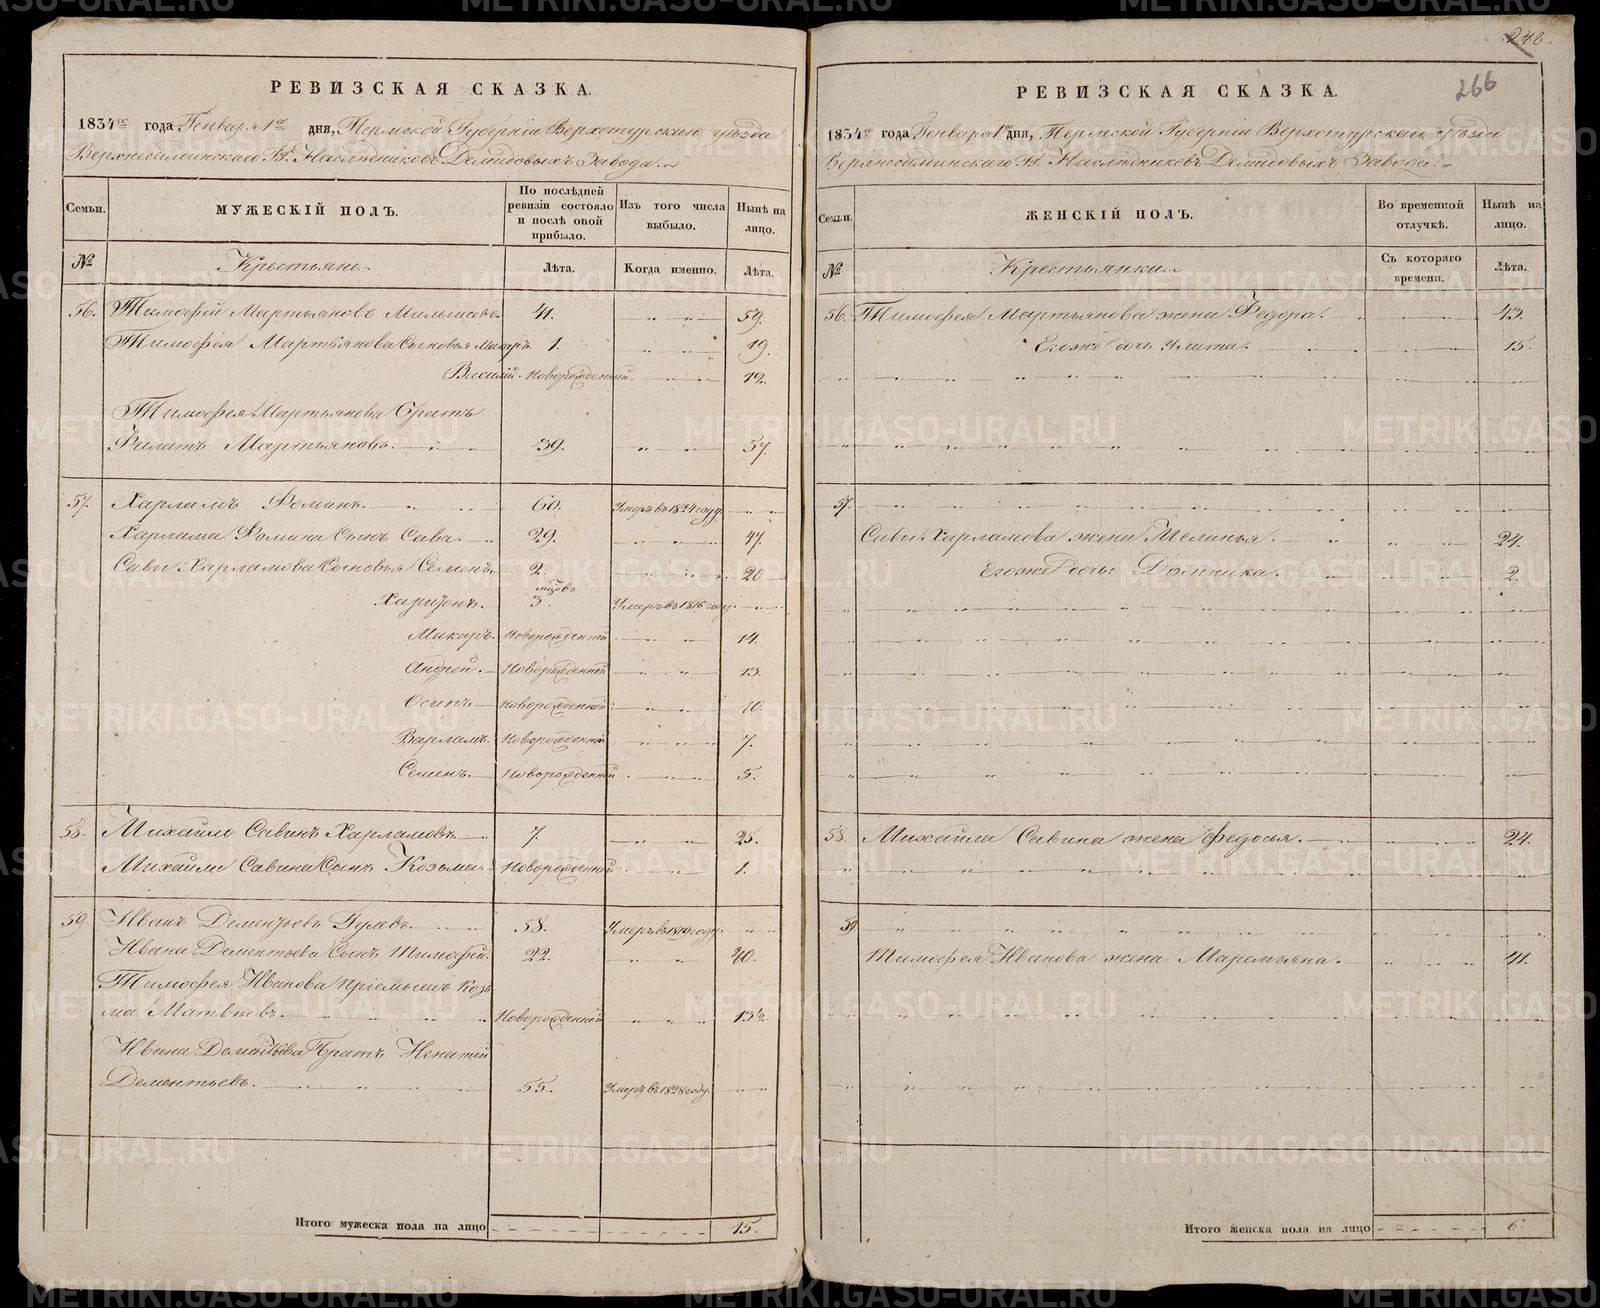 248.
266
РЕВИЗСКАЯ СКАЗКА.
1834го года Генваря 1го дня, Пермской Губерніи Верхотурскаго уѣзда
Верхнесалдинскаго Гг. Наслѣдниковъ Демидовыхъ Завода.
Семьи. МУЖЕСКІЙ ПОЛЪ. По послѣдней ревизіи состояло и послѣ оной прибыло. Изъ того числа выбыло. Нынѣ на лицо.
№ Крестьяне Лѣта. Когда именно. Лѣта.
56. Тимофей Мартьяновъ 41. 59.
Тимофея Мартьянова Сыновья Макаръ 1. 19.
Василій Новорожденный 12.
Тимофея Мартьянова Братъ
Филатъ Мартьяновъ. 39. 57.
57. Харламъ Фоминъ. 60. Умеръ въ 1824 году
Харлама Фомина Сынъ Сава. 29. 47.
Савы Харламова Сыновья Семенъ 2. 20
Харитонъ. 3. Умеръ въ 1816 году
Макаръ. Новорожденной 14.
Андрей. Новорожденной 13.
Осипъ Новорожденной 10.
Варламъ. Новорожденной 7.
Семенъ. Новорожденной 5.
58. Михайло Савинъ Харламовъ 7 25.
Михайлы Савина Сынъ Козьма Новорожденный 1.
59. Иванъ Дементьевъ 58. Умеръ въ году
Ивана Дементьева Сынъ Тимофей. 22. 40.
Тимофея Иванова пріемышъ Козь
ма Матвѣевъ. Новорожденной 13½
Ивана Дементьева Братъ Игнатій
Дементьевъ. 55. Умеръ въ 1828 году.
Итого мужеска пола на лицо 15.
РЕВИЗСКАЯ СКАЗКА.
1834го года Генваря 1го дня, Пермской Губерніи Верхотурскаго уѣзда
Верхнесалдинскаго Гг. Наслѣдниковъ Демидовыхъ Завода.
Семьи. ЖЕНСКІЙ ПОЛЪ. Во временной отлучкѣ. Нынѣ на лицо.
№ Крестьянки Съ котораго времени. Лѣта.
56. Тимофея Мартьянова жена Федора. 43.
Егоже дочь Улита. 15.
57.
Савы Харламова жена Меланья. 24.
Егоже дочь: Домника. 2.
58. Михайлы Савина жена Федосья. 24.
59
Тимофея Иванова жена Маремьяна. 41.
Итого женска пола на лицо 6.
METRIKI.GASO-URAL.RU